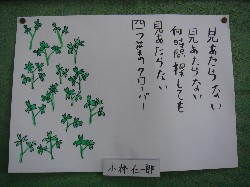 見あたらない
見あたらない
何時間探しても
見あたらない
四つ葉のクローバー
小林仁一郎